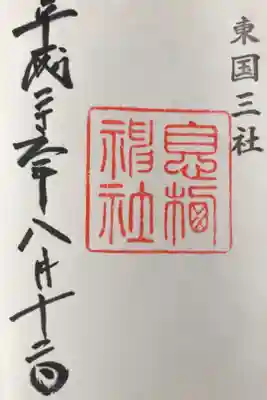 東国三社
息栖神社
平成二十六年八月十二日